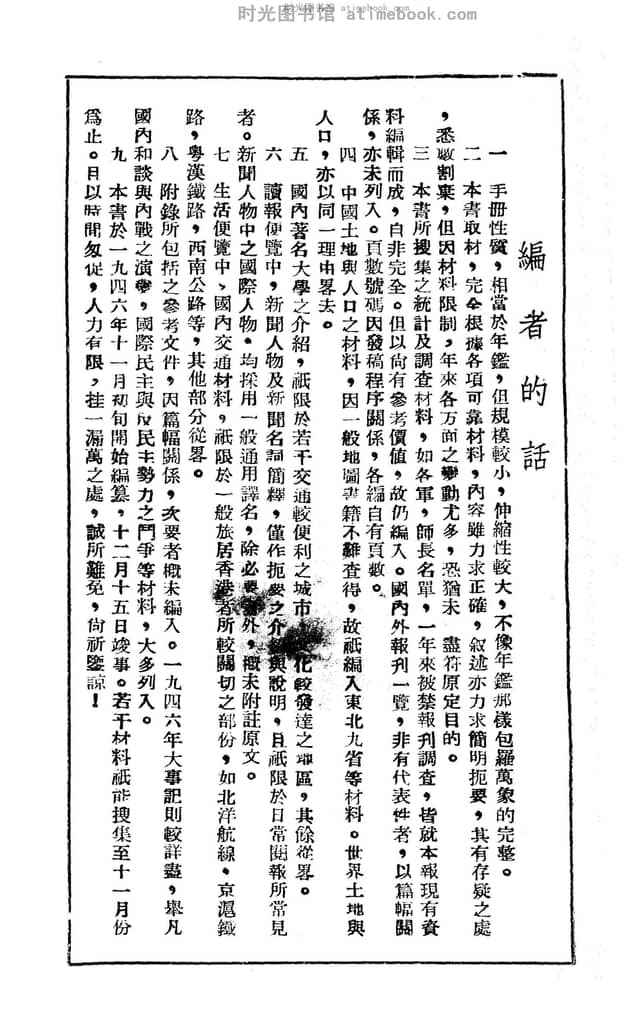 时光图书馆 atimebook.com
编者的話
一　手冊性質，相當於年鑑，但規模較小，伸縮性較大，不像年鑑那樣包羅萬象的完整。
二　本書取材，完全根據各項可靠材料，內容雖力求正確，叙述亦力求簡明扼要，其有存疑之處
，悉數割棄，但因材料限制，年來各方面之變動尤多，恐猶未　盡符原定目的。
三　本書所搜集之統計及調查材料，如各軍，師長名單，一年來被禁報刊調查，皆就本報現有資
料編輯而成，自非完全。但以尙有參考價値，故仍編入。國內外報刊一覽，非有代表性者，以篇幅關
係，亦未列入。頁數號碼因發稿程序關係，各編自有頁數。
四　中國土地與人口之材料，因一般地圖書籍不難查得，故祇編入東北九省等材料。世界土地與
人口，亦以同一理由畧去。
五　國內著名大學之介紹，祇限於若干交通較便利之城市　化較發達之地區，其餘從畧。
六　讀報便覽中，新聞人物及新聞名詞簡釋，僅作扼要之介紹與說明，且祇限於日常閱報所常見
者。新聞人物中之國際人物，均採用一般通用譯名，除必要　外，概未附註原文。
七　生活便覽中、國內交通材料，祇限於一般旅居香港者所較關切之部份，如北洋航線，京滬鐵
路，粵漢鐵路，西南公路等，其他部分從畧。
八　附錄所包括之參考文件，因篇幅關係，次要者概未編入。一九四六年大事記則較詳盡，舉凡
國內和談與內戰之演變，國際民主與反民主勢力之鬥爭等材料，大多列入。
九　本書於一九四六年十一月初旬開始編纂，十二月十五日竣事。若干材料祇能搜集至十一月份
爲止。且以時間匆促，人力有限，挂一漏萬之處，誠所難免，尙祈鑒諒！